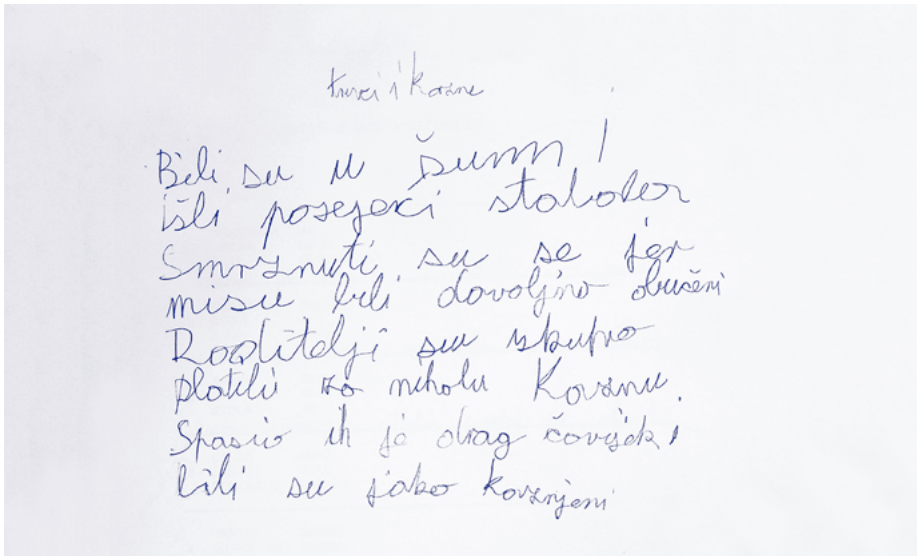 i Kazne
Bili su u šumi
išli posejeći stabala
Smrznuti su se jer
nisu bili dovoljno obučeni
Roditelji su skupo
platili za nekolu Kaznu.
Spasio ih je drag čovjek,
bili su jako kažnjeni